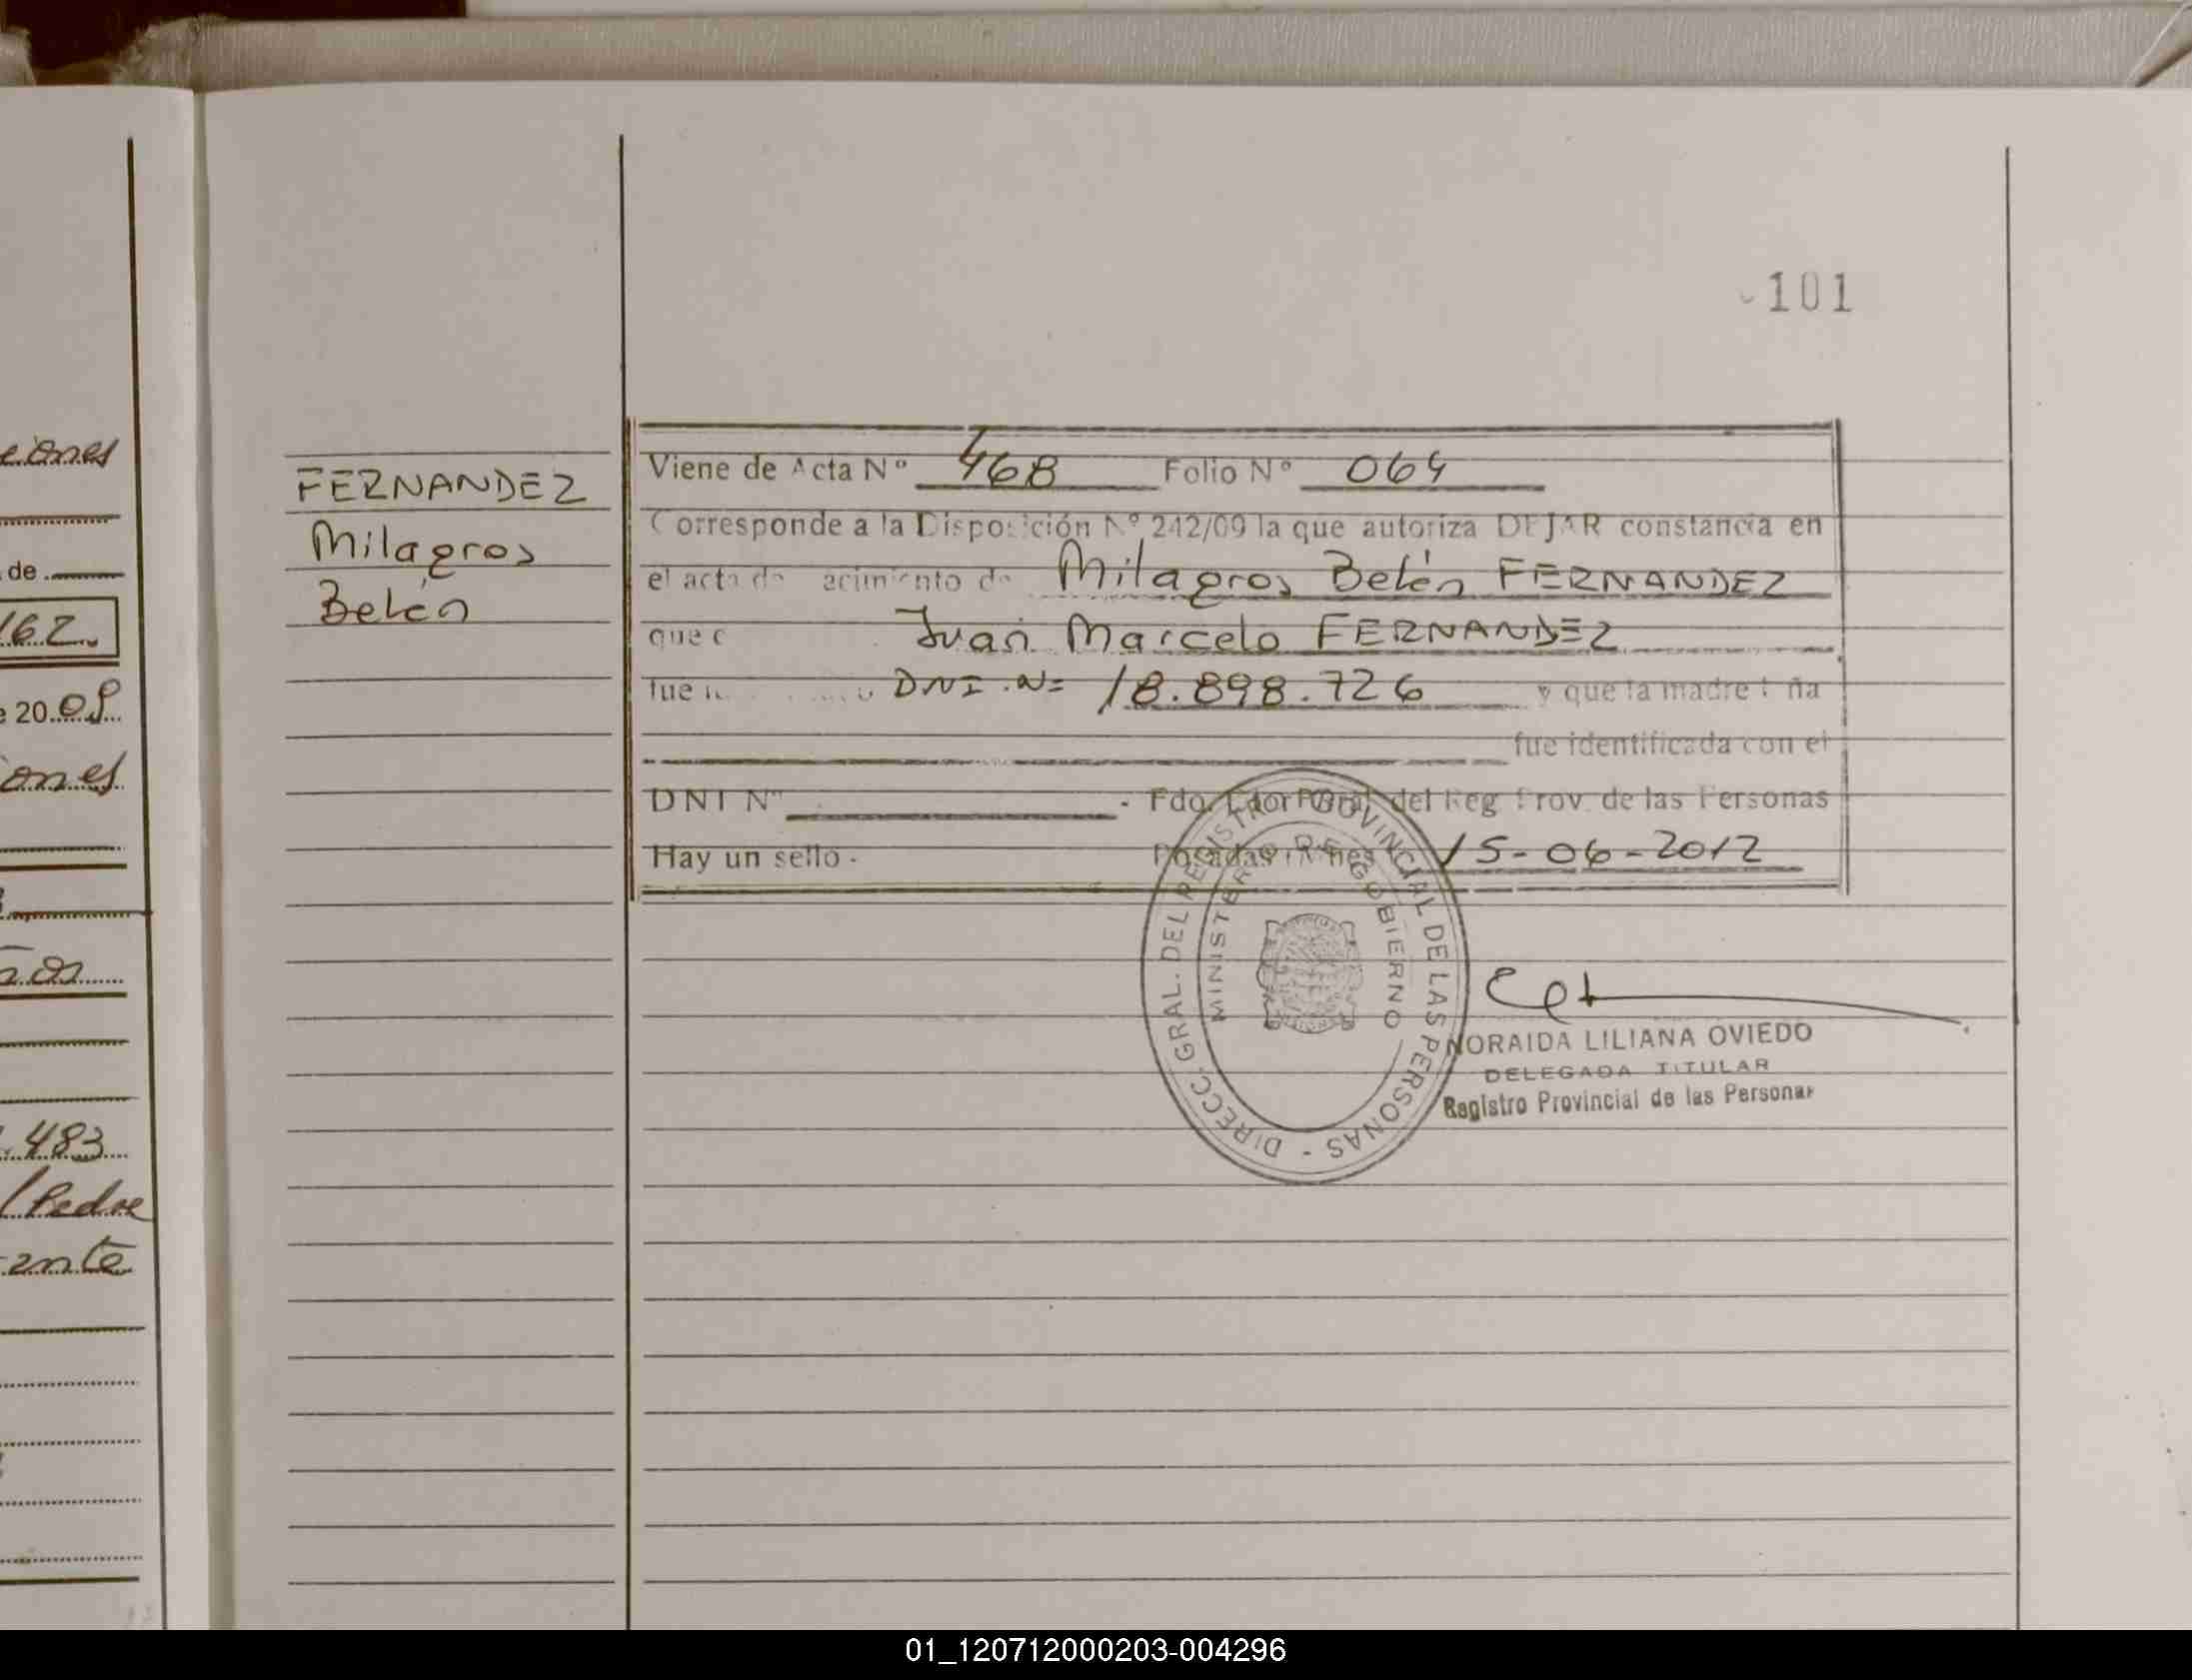 eones
de
162
20 09
ones
483
Padre
ante
101
FERNANDEZ
Milagros
Belén
Viene de Acta Nº 468 Folio Nº 064
Corresponde a la Disposición Nº 242/09 la que autoriza DEJAR constancia en
el acta de Milagros Belén FERNANDEZ
que Juan Marcelo FERNANDEZ
fue DNI Nº 18.898.726 y que la madre
fue identificada con el
DNI Nº - Fdo. Gral. del Reg Prov. de las Personas
Hay un sello - Posadas 15-06-2012
DIRECC. GRAL. DEL REGISTRO PROVINCIAL DE LAS PERSONAS -
MINISTERIO DE GOBIERNO
NORAIDA LILIANA OVIEDO
DELEGADA TITULAR
Registro Provincial de las Personas
01_120712000203-004296